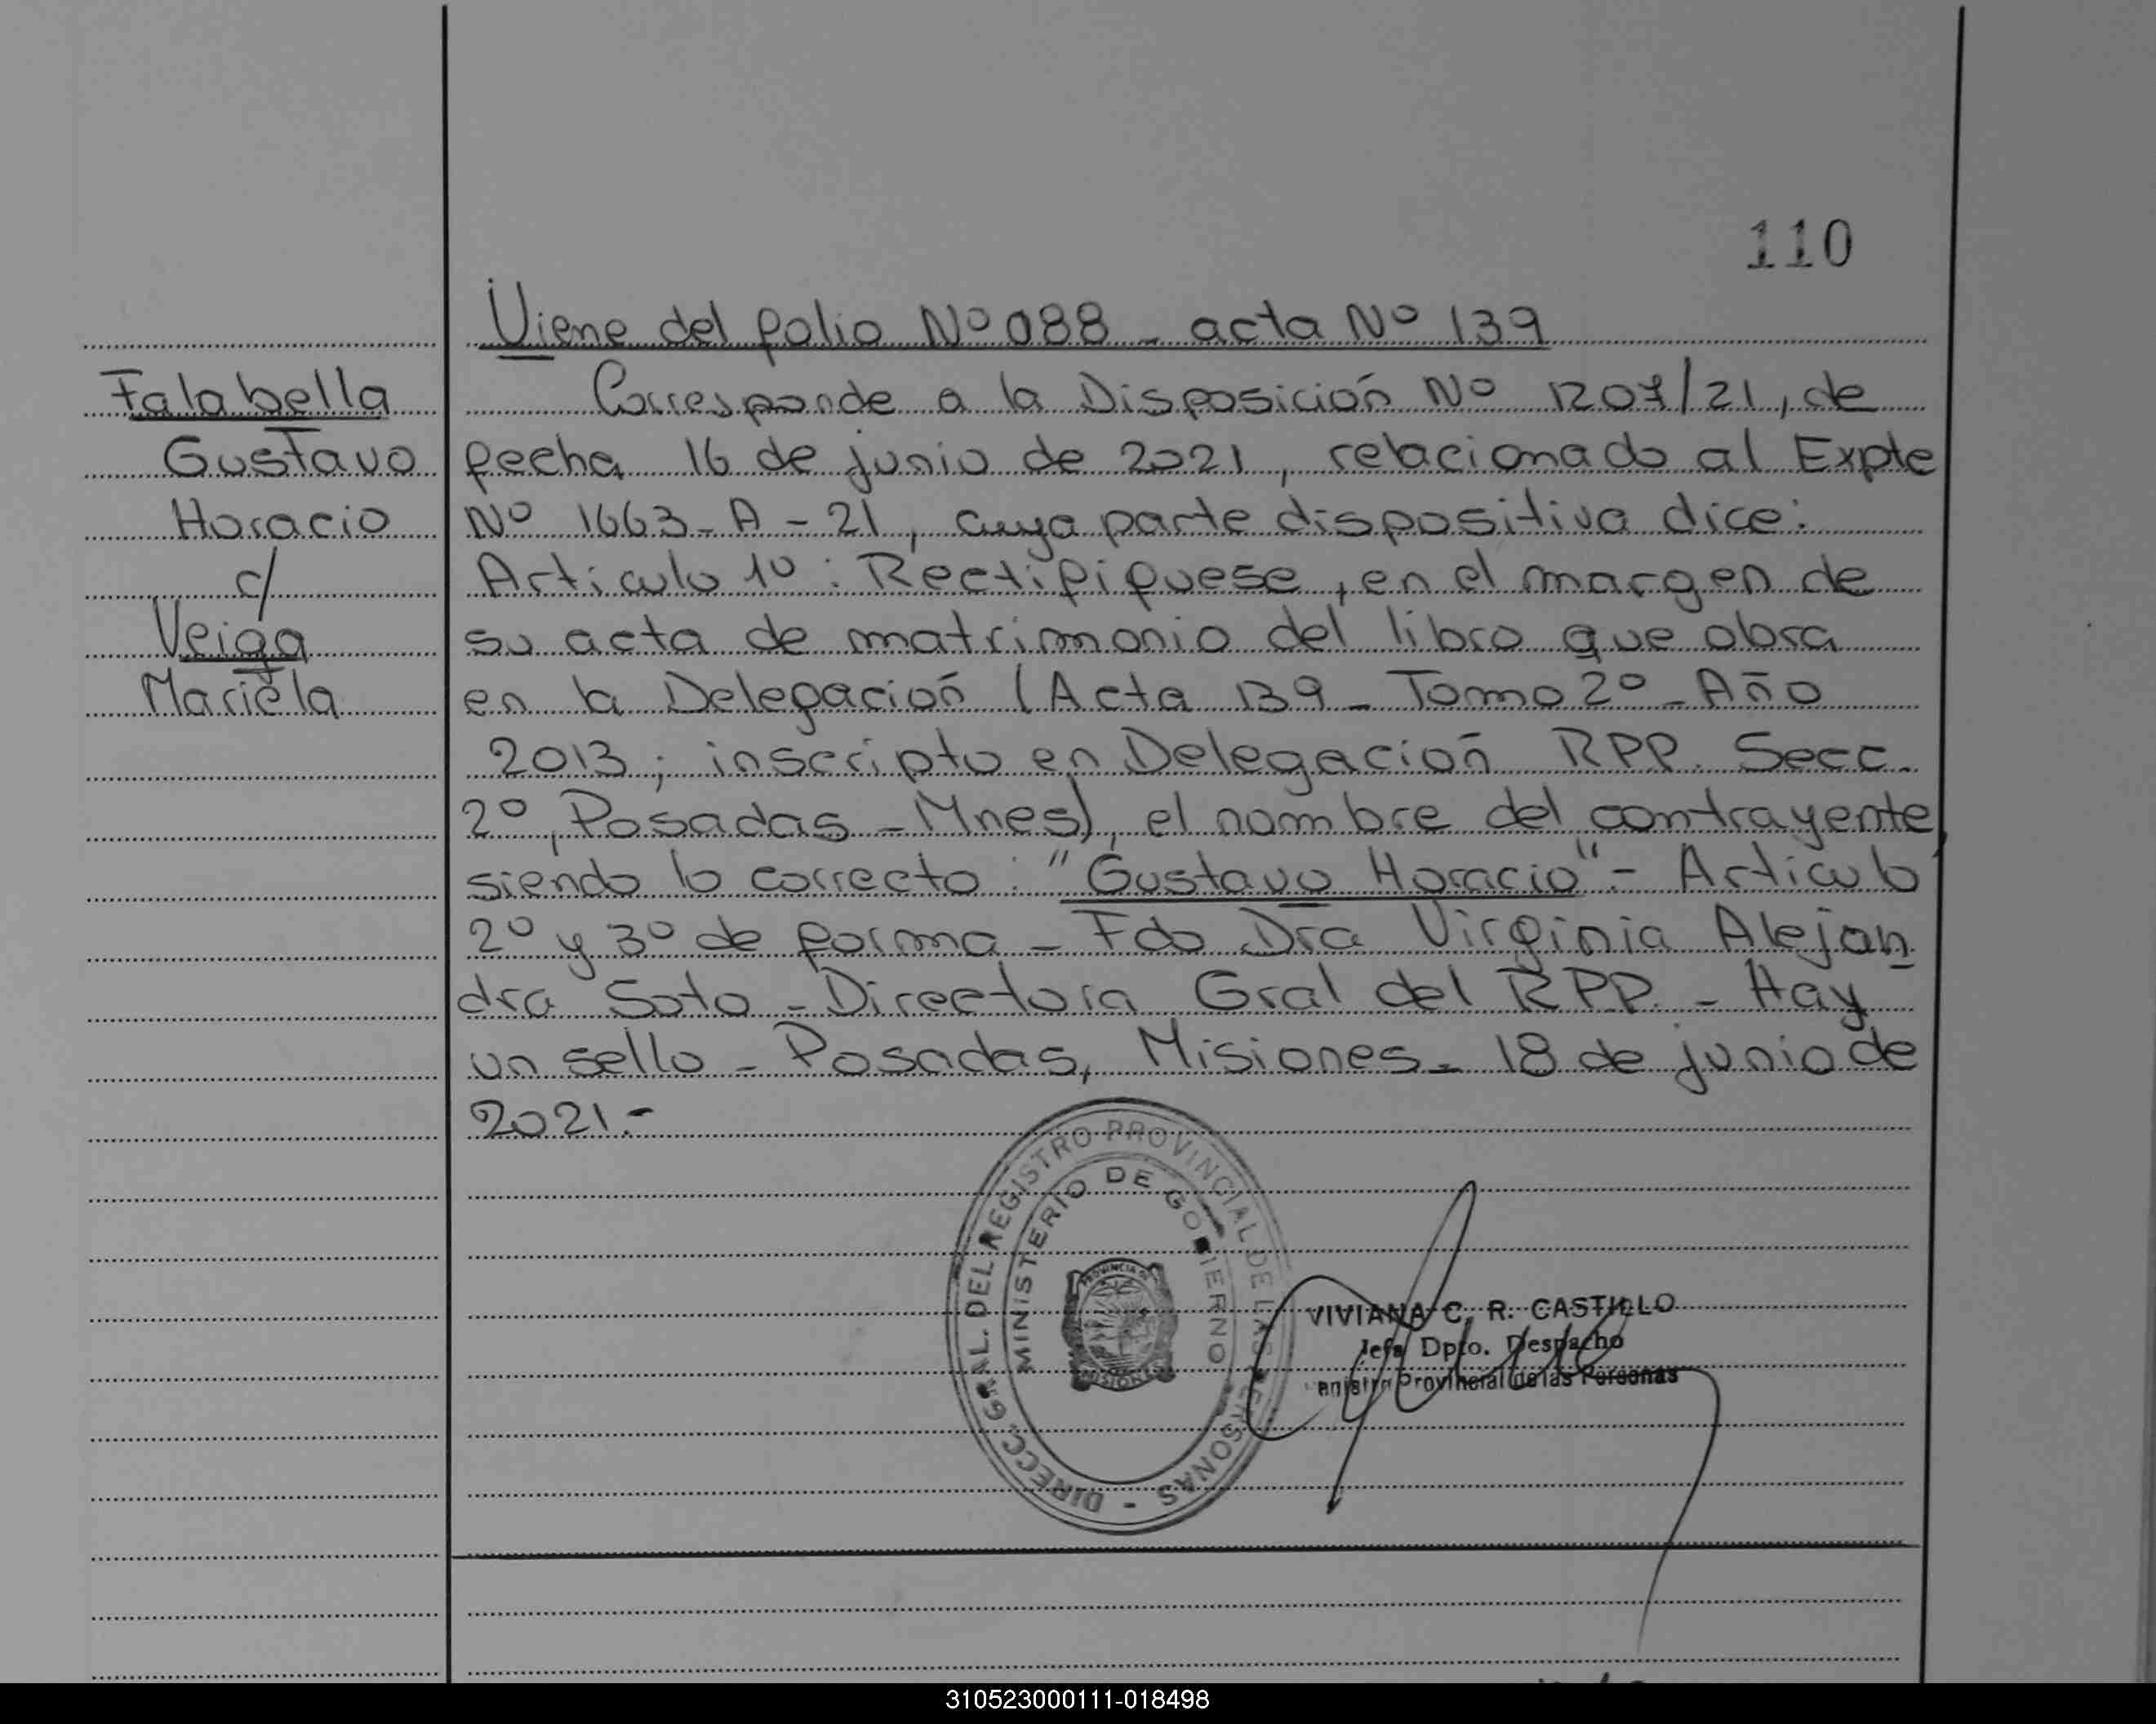 110
Viene del folio Nº 088 - acta Nº 139
Falabella
Gustavo
Horacio
c/
Veiga
Mariela
Corresponde a la Disposición Nº 1207/21, de
fecha 16 de junio de 2021, relacionado al Expte
Nº 1663-A-21, cuya parte dispositiva dice:
Articulo 1º: Rectifiquese, en el margen de
su acta de matrimonio del libro que obra
en la Delegación (Acta 139 - Tomo 2º - Año
2013; inscripto en Delegación RPP. Secc.
2º, Posadas - Mnes), el nombre del contrayente,
siendo lo correcto: "Gustavo Horacio".- Articulo
2º y 3º de forma - Fdo Dra Virginia Alejan
dra Soto - Directora Gral del RPP. - Hay
un sello - Posadas, Misiones - 18 de junio de
2021.-
DIRECC. GRAL. DEL REGISTRO PROVINCIAL DE LAS PERSONAS -
MINISTERIO DE GOBIERNO
PROVINCIA DE
MISIONES
VIVIANA C. R. CASTILLO
Jefa Dpto. Despacho
Provincial de las Personas
310523000111-018498